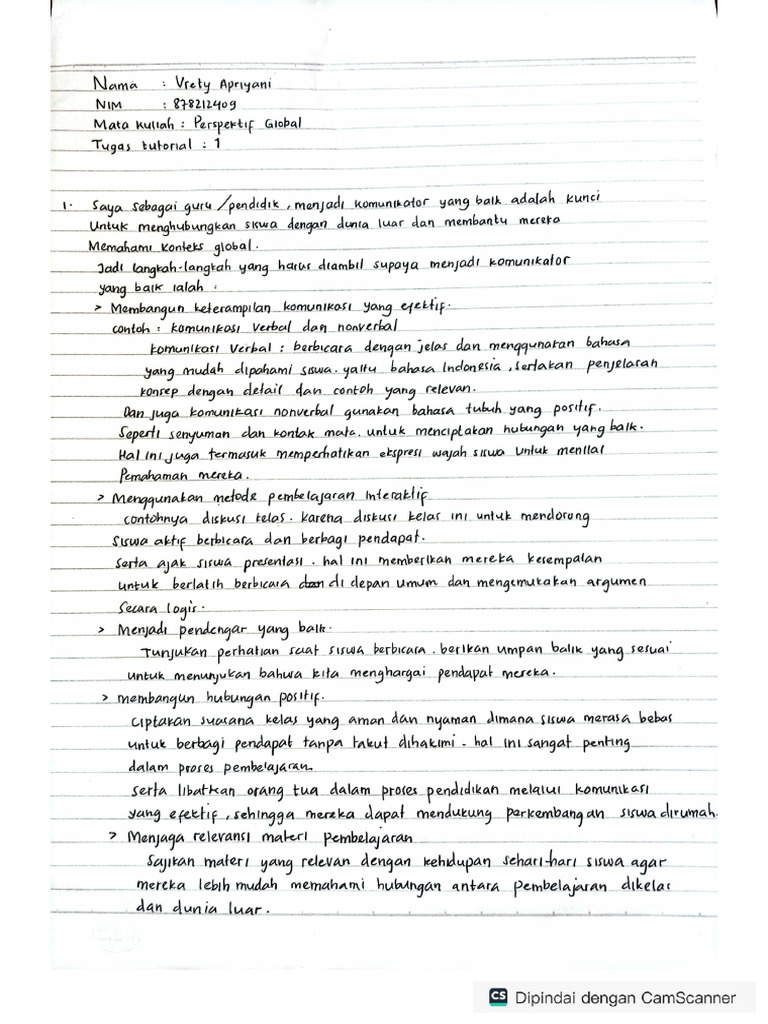 Nama : Vrety Apriyani
NIM : 878212409
Mata kuliah : Perspektif Global
Tugas tutorial : 1
1. Saya sebagai guru/pendidik, menjadi komunikator yang baik adalah kunci
Untuk menghubungkan siswa dengan dunia luar dan membantu mereka
Memahami konteks global.
Jadi langkah-langkah yang harus diambil supaya menjadi komunikator
yang baik ialah :
> Membangun keterampilan komunikasi yang efektif.
contoh : komunikasi verbal dan nonverbal
komunikasi verbal : berbicara dengan jelas dan menggunakan bahasa
yang mudah dipahami siswa. yaitu bahasa Indonesia, sertakan penjelasan
konsep dengan detail dan contoh yang relevan.
Dan juga komunikasi nonverbal gunakan bahasa tubuh yang positif.
Seperti senyuman dan kontak mata. untuk menciptakan hubungan yang baik.
Hal ini juga termasuk memperhatikan ekspresi wajah siswa untuk menilai
Pemahaman mereka.
> Menggunakan metode pembelajaran Interaktif
contohnya diskusi kelas. karena diskusi kelas ini untuk mendorong
siswa aktif berbicara dan berbagi pendapat.
serta ajak siswa presentasi. hal ini memberikan mereka kesempatan
untuk berlatih berbicara di depan umum dan mengemukakan argumen
Secara logis.
> Menjadi pendengar yang baik.
Tunjukan perhatian saat siswa berbicara. berikan umpan balik yang sesuai
untuk menunjukan bahwa kita menghargai pendapat mereka.
> membangun hubungan positif.
ciptakan suasana kelas yang aman dan nyaman dimana siswa merasa bebas
untuk berbagi pendapat tanpa takut dihakimi. hal ini sangat penting
dalam proses pembelajaran.
serta libatkan orang tua dalam proses pendidikan melalui komunikasi
yang efektif, sehingga mereka dapat mendukung perkembangan siswa dirumah.
> Menjaga relevansi materi pembelajaran
Sajikan materi yang relevan dengan kehidupan sehari-hari siswa agar
mereka lebih mudah memahami hubungan antara pembelajaran dikelas
dan dunia luar.
CS Dipindai dengan CamScanner